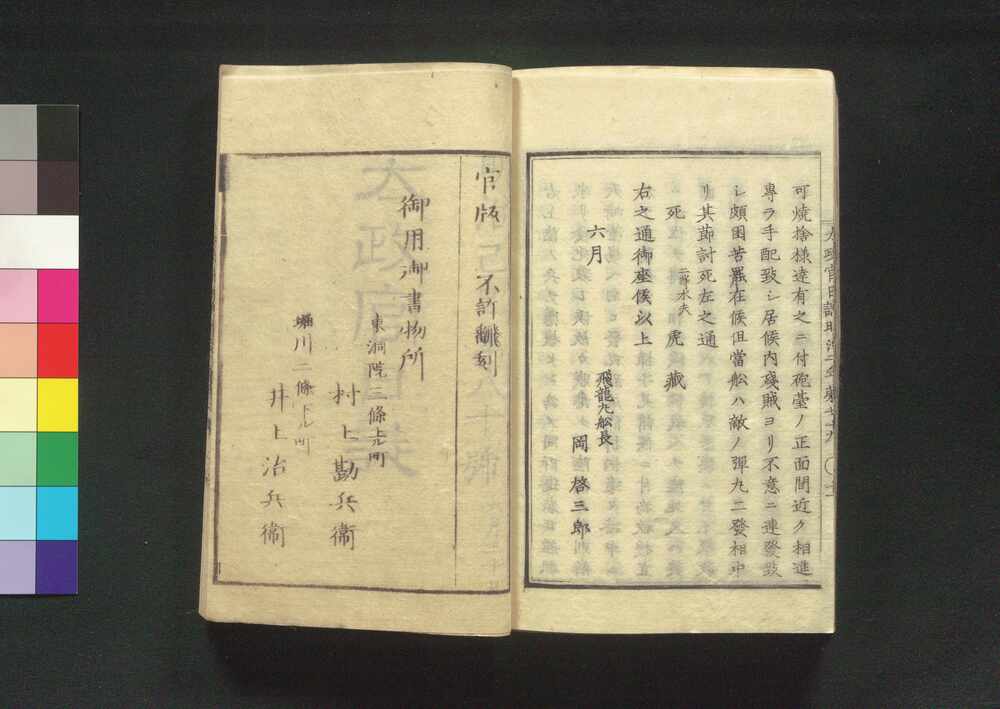 可燒捨樣達有之ニ付砲臺ノ正面間近ク相進
專ラ手配致シ居候内殘賊ヨリ不意ニ連發致
シ頗困苦罷在候但當舩ハ敵ノ彈丸二發相中
リ其節討死左之通
死 二等水夫 虎藏
右之通御座候以上
飛龍丸舩長
六月 岡啓三郎
太政官日誌明治二年 第七十九
官版 不許翻刻
御用御書物所
東洞院三條上ル町
村上勘兵衞
堀川二條上ル町
井上治兵衞